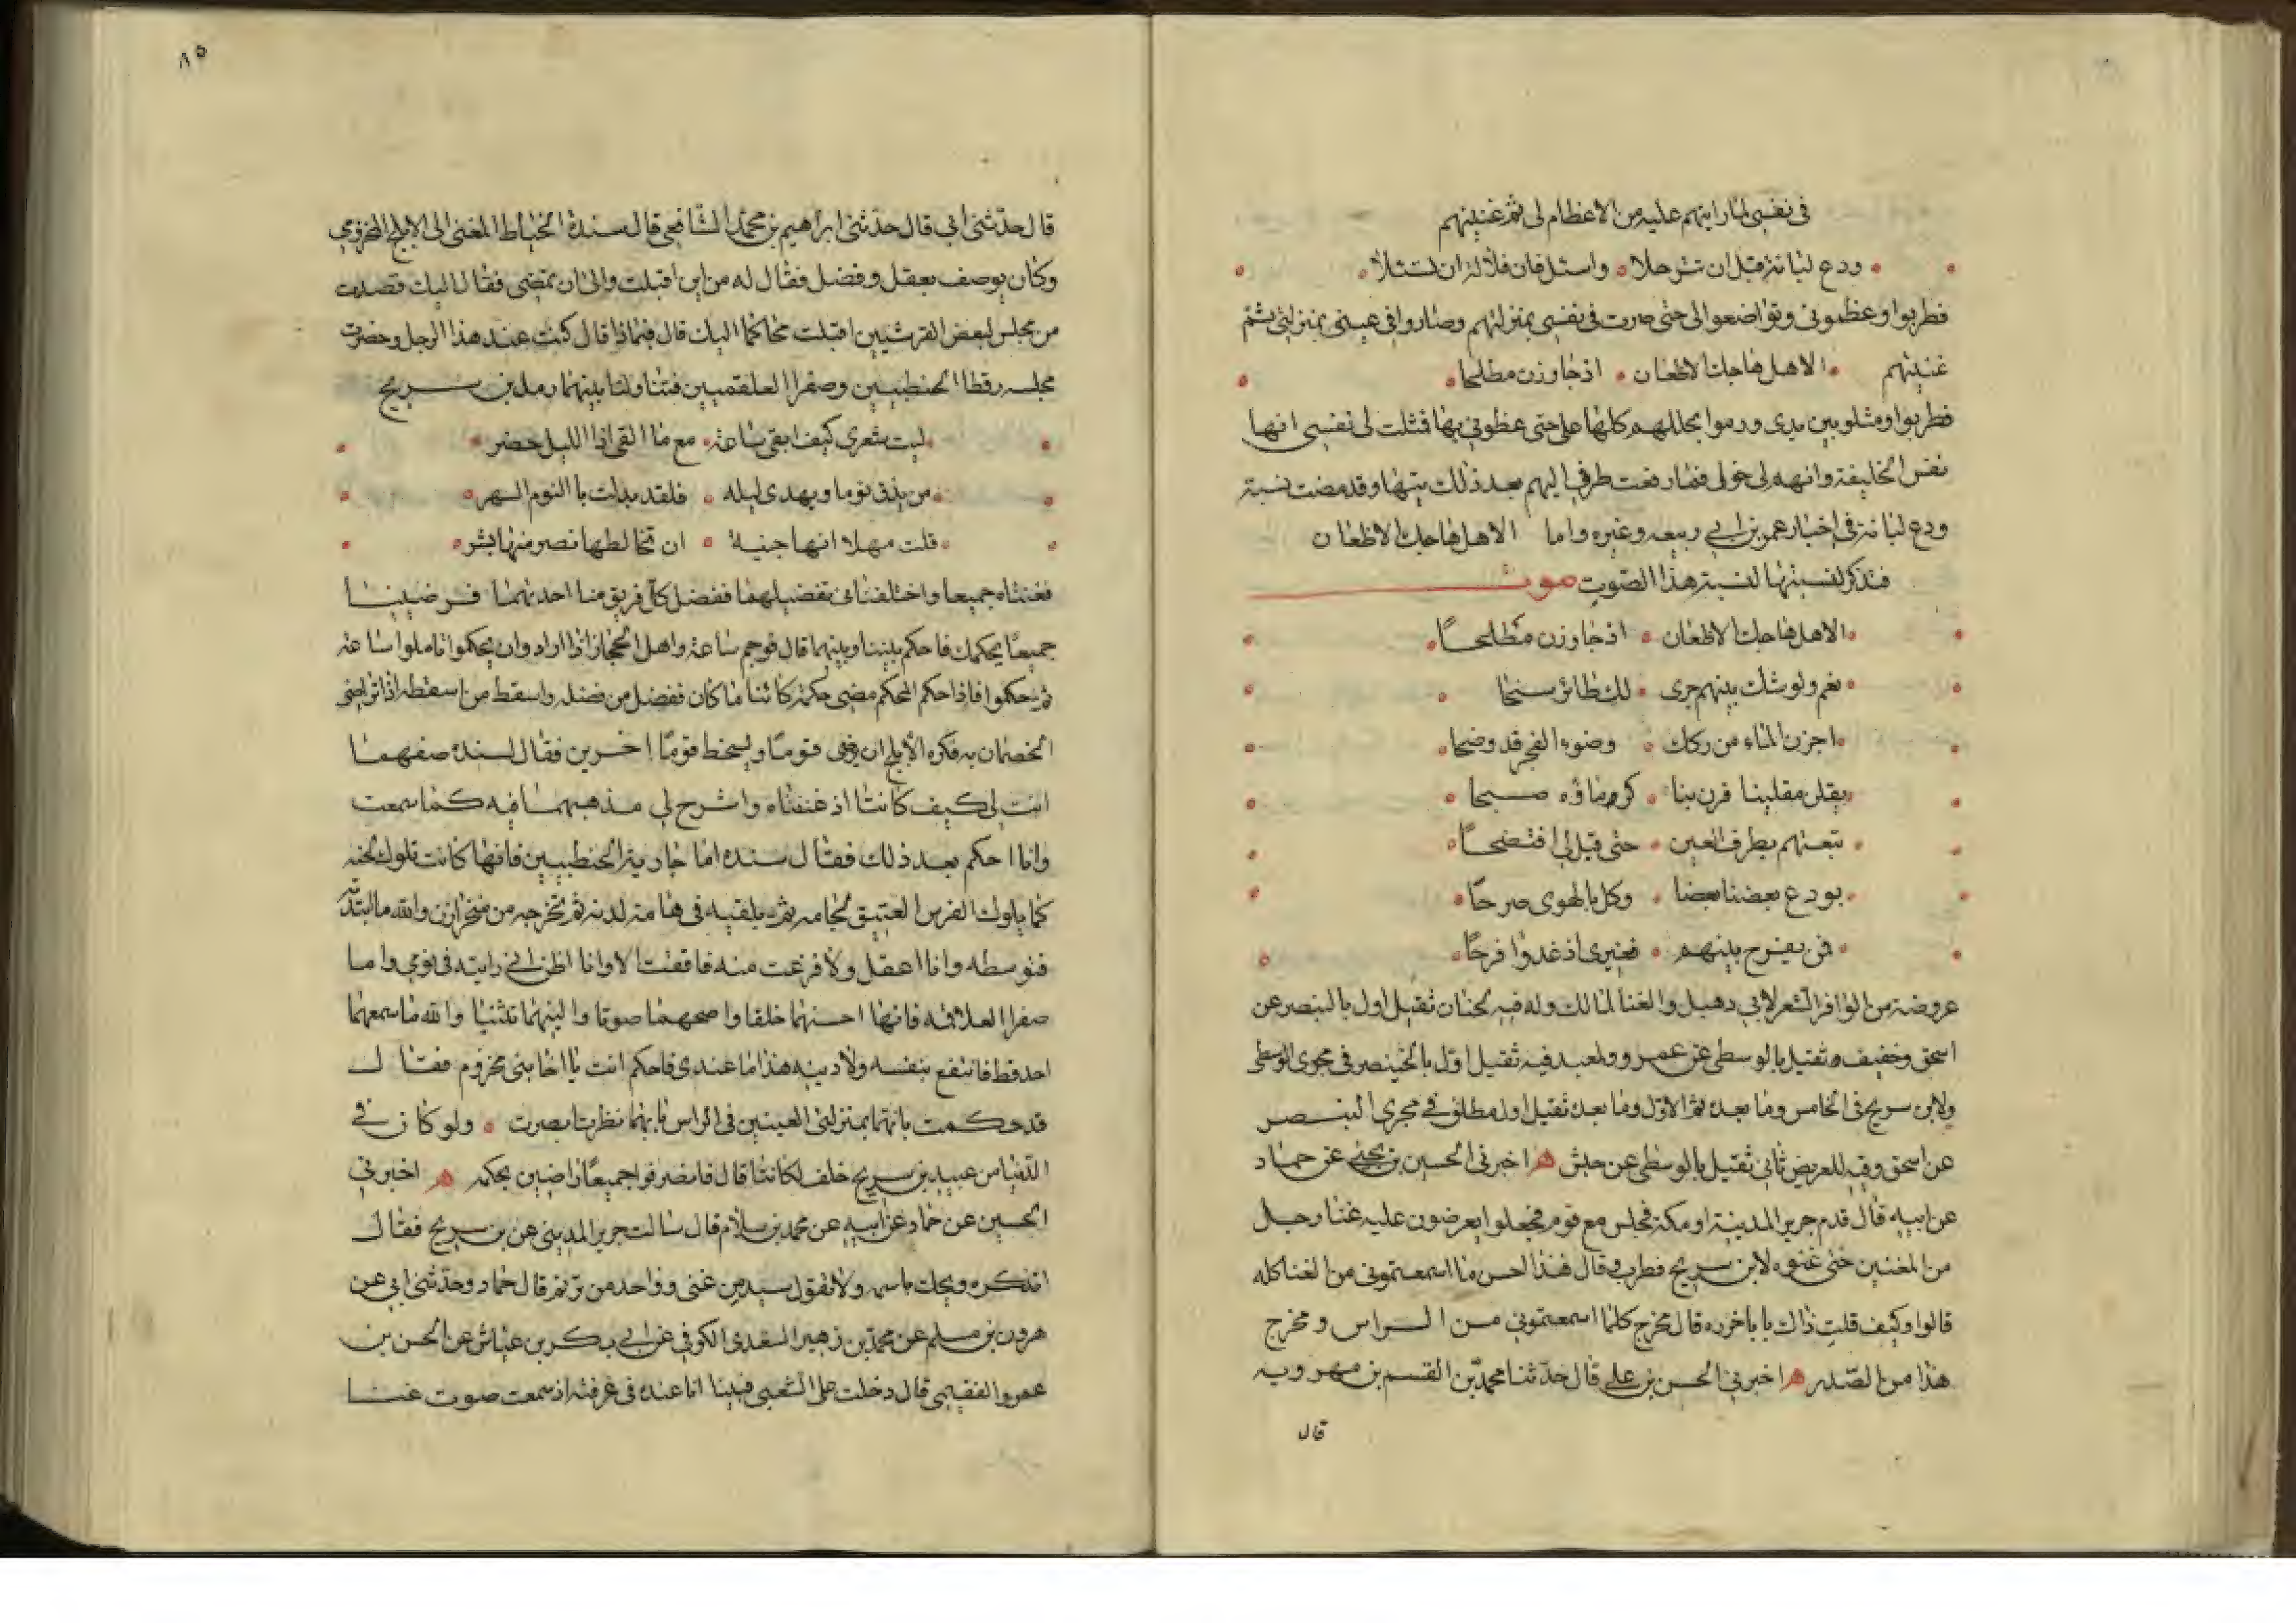 في نفسي لما رايتهم عليه من الاعظام لي ثم غنيتهم
ودع لبانة قبل ان تترحلا واسئل فان قلاله ان تسئلا
فطربوا وعظموني وتواضعوا الى حتى صرت في نفسي بمنزلتهم وصاروا في عيني بمنزلتي ثم
غنيتهم الا هل هاجك الاظعان اذ جاوزن مطلحا
فطربوا ومثلوا بين يدى ورموا بحللهم كلها علي حتى غطوني بها فمثلت لى نفسي انها
نفس الخليفة وانهم لى خول فما رفعت طرفي اليهم بعد ذلك تيها وقد مضت نسبة
ودع لبانة في اخبار عمر بن ابي ربيعه وغيره واما الا هل هاجك الاظعان
فنذكر نسبتها نسبة هذا الصوت صوت
الا هل هاجك الاظعان اذ جاوزن مطلحا
نعم ولوشك بينهم جرى لك طائر سنحا
اجزن الماء من ركك وضوء الفجر قد وضحا
يقلن مقلينا قرن بنا كر ماؤه صبحا
تبعتهم بطرف العين حتى قيل لي افتضحا
يودع بعضنا بعضا وكل بالهوى صرحا
فمن يفرح ببينهم فغيرى اذ غدوا فرحا
عروضه من الوافر الشعر لابي دهبل والغنا لمالك وله فيه لحنان ثقيل اول بالبنصر عن
اسحق وخفيف ثقيل بالوسطى عن عمرو ولمعبد فيه ثقيل اول بالخنصر في مجرى الوسطى
ولابن سريج في الخامس وما بعده ثم الاول وما بعده ثقيل اول مطلق في مجرى البنصر
عن اسحق وفيه للغريض ثاني ثقيل بالوسطى عن حبش هـ اخبرني الحسين بن يحيى عن حماد
عن ابيه قال قدم جرير المدينة او مكة فجلس مع قوم فجعلوا يعرضون عليه غنا رجل
من المغنين حتى غنوه لابن سريج فطرب وقال هذا احسن ما اسمعتموني من الغنا كله
قالوا وكيف قلت ذاك يا باحزره قال مخرج كلما اسمعتموني من الراس ومخرج
هذا من الصدر هـ اخبرني الحسن بن علي قال حدثنا محمد بن القسم بن مهرويه
قال
٨٥
قال حدثني ابي قال حدثني ابراهيم بن محمد الشافعي قال سندة الخياط المغني الى الابلج المخزومي
وكان يوصف بعقل وفضل فقال له من اين اقبلت والى اين تمضي فقال اليك قصدت
من مجلس لبعض القرشيين اقبلت محاكما اليك قال فبماذا قال كنت عند هذا الرجل وحضرت
مجلسه رقطا الحنطبيين وصفرا العلقميين فتناولتا بينهما رمل بن سريج
ليت شعرى كيف ابقى ساعة مع ما القى اذا الليل حضر
من يذق نوما ويهدى ليله فلقد بدلت بالنوم السهر
قلت مهلا انها جنية ان تخالطها تصر منها بشر
فغنتاه جميعا واختلفنا في تفضيلهما ففضل كل فريق منا احدتهما فرضينا
جميعا بحكمك فاحكم بيننا وبينهما قال فوجم ساعة واهل الحجاز اذا اراد وان يحكموا تاملوا ساعة
ثم حكموا فاذا حكم المحكم مضى حكمه كائنا ما كان ففضل من فضله واسقط من اسقطه اذا تراضى
الخصمان به فكره الابلج ان يرضى قوما ويسخط قوما اخرين فقال لسنده صفهما
انت لي كيف كانتا اذ غنتاه واشرح لي مذهبهما فيه كما سمعت
وانا احكم بعد ذلك فقال سنده اما جارية الحنطبيين فانها كانت تلوك لحنه
كما يلوك الفرس العتيق لجامه ثم يلقيه في هامة لدنه ثم تخرجه من منخر اغن والله ما ابتدته
فتوسطه وانا اعقل ولا فرغت منه فافقت الا وانا اظن اني رايته في نومي واما
صفرا العلقميه فانها احسنهما حلقا واصحهما صوتا والينهما تثنيا والله ما سمعها
احد قط فانتفع بنفسه ولا دينه هذا ما عندى فاحكم انت يا اخا بنى مخزوم فقال
قد حكمت بانهما بمنزلة العينين في الراس فبايهما نظرت ابصرت ولو كان في
الدنيا من عبيد بن سريج خلف لكانتا قال فانصرفوا جميعا راضين بحكمه هـ اخبرني
الحسين عن حماد عن ابيه عن محمد بن سلام قال سالت جرير المديني عن بن سريج فقال
اتذكره ويحك باسمه ولا تقول سيد من غنى وواحد من ترنم قال حماد وحدثني ابي عن
هرون بن مسلم عن محمد بن زهير السعدى الكوفي عن ابي بكر بن عياش عن الحسن بن
عمرو الفقيمي قال دخلت على الشعبي فبينا انا عنده في غرفته اذ سمعت صوت غنا